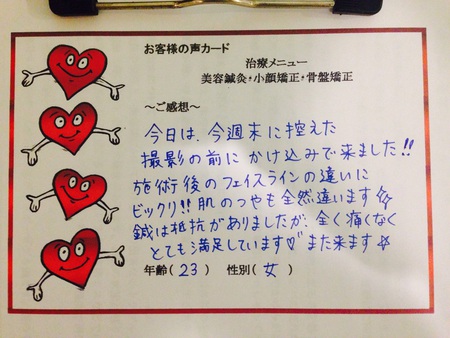 お客様の声カード
治療メニュー
美容鍼灸・小顔矯正・骨盤矯正
～ご感想～
今日は、今週末に控えた
撮影の前にかけ込みで来ました!!
施術後のフェイスラインの違いに
ビックリ!! 肌のつやも全然違います☆
鍼は抵抗がありましたが、全く痛くなく
とても満足しています♡ また来ます☆
年齢( 23 ) 性別( 女 )